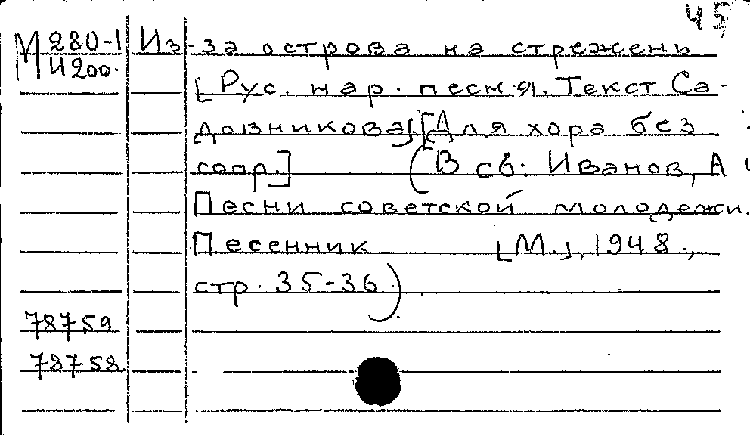 45
М 280-1 Из-за острова на стрежень
И 200. [Рус. нар. песня. Текст Са-
довникова] [Для хора без
сопр.] (В сб: Иванов, А
Песни советской молодежи.
Песенник [М.], 1948.,
стр. 35-36).
78759
78758